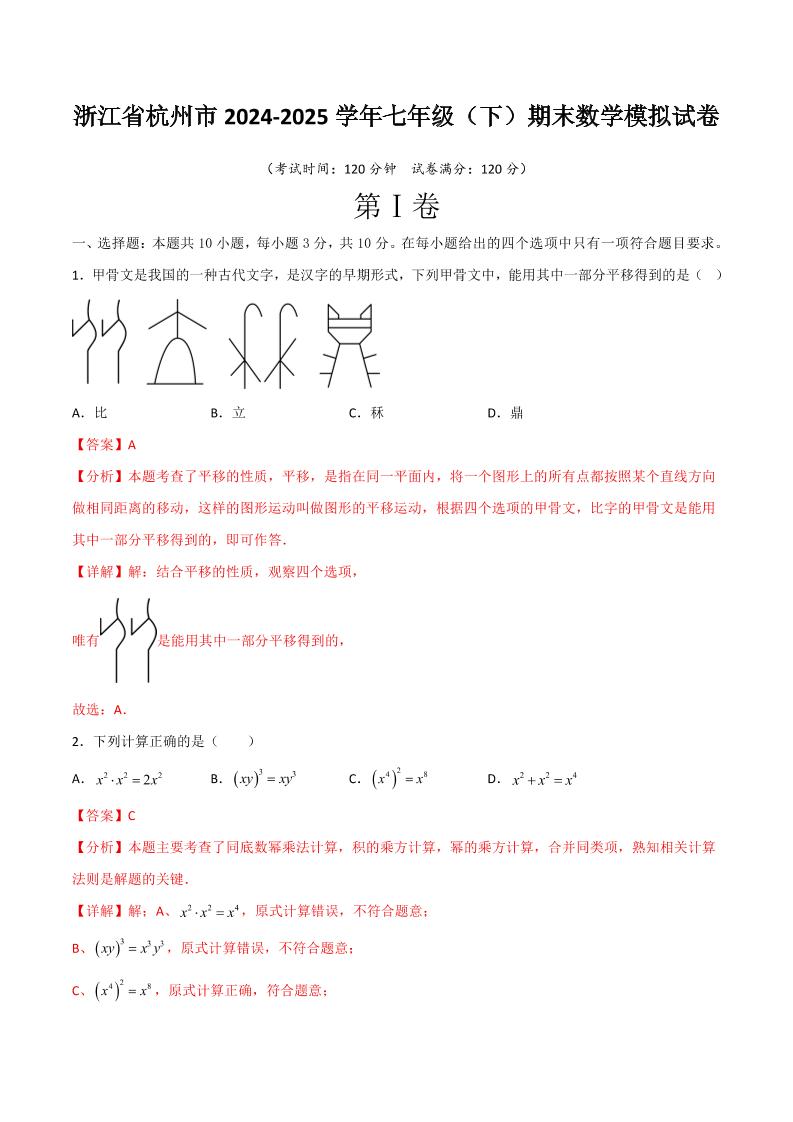 浙江省杭州市 2024-2025 学年七年级（下）期末数学模拟试卷
（考试时间：120 分钟　试卷满分：120 分）
第 I 卷
一、选择题：本题共 10 小题，每小题 3 分，共 10 分。在每小题给出的四个选项中只有一项符合题目要求。
1．甲骨文是我国的一种古代文字，是汉字的早期形式，下列甲骨文中，能用其中一部分平移得到的是（　）
A．比　B．立　C．秝　D．鼎
【答案】A
【分析】本题考查了平移的性质，平移，是指在同一平面内，将一个图形上的所有点都按照某个直线方向
做相同距离的移动，这样的图形运动叫做图形的平移运动，根据四个选项的甲骨文，比字的甲骨文是能用
其中一部分平移得到的，即可作答．
【详解】解：结合平移的性质，观察四个选项，
唯有是能用其中一部分平移得到的，
故选：A．
2．下列计算正确的是（　　）
A．x²·x²=2x²　B．(xy)³=xy³　C．(x⁴)²=x⁸　D．x²+x²=x⁴
【答案】C
【分析】本题主要考查了同底数幂乘法计算，积的乘方计算，幂的乘方计算，合并同类项，熟知相关计算
法则是解题的关键．
【详解】解；A、x²·x²=x⁴，原式计算错误，不符合题意；
B、(xy)³=x³y³，原式计算错误，不符合题意；
C、(x⁴)²=x⁸，原式计算正确，符合题意；